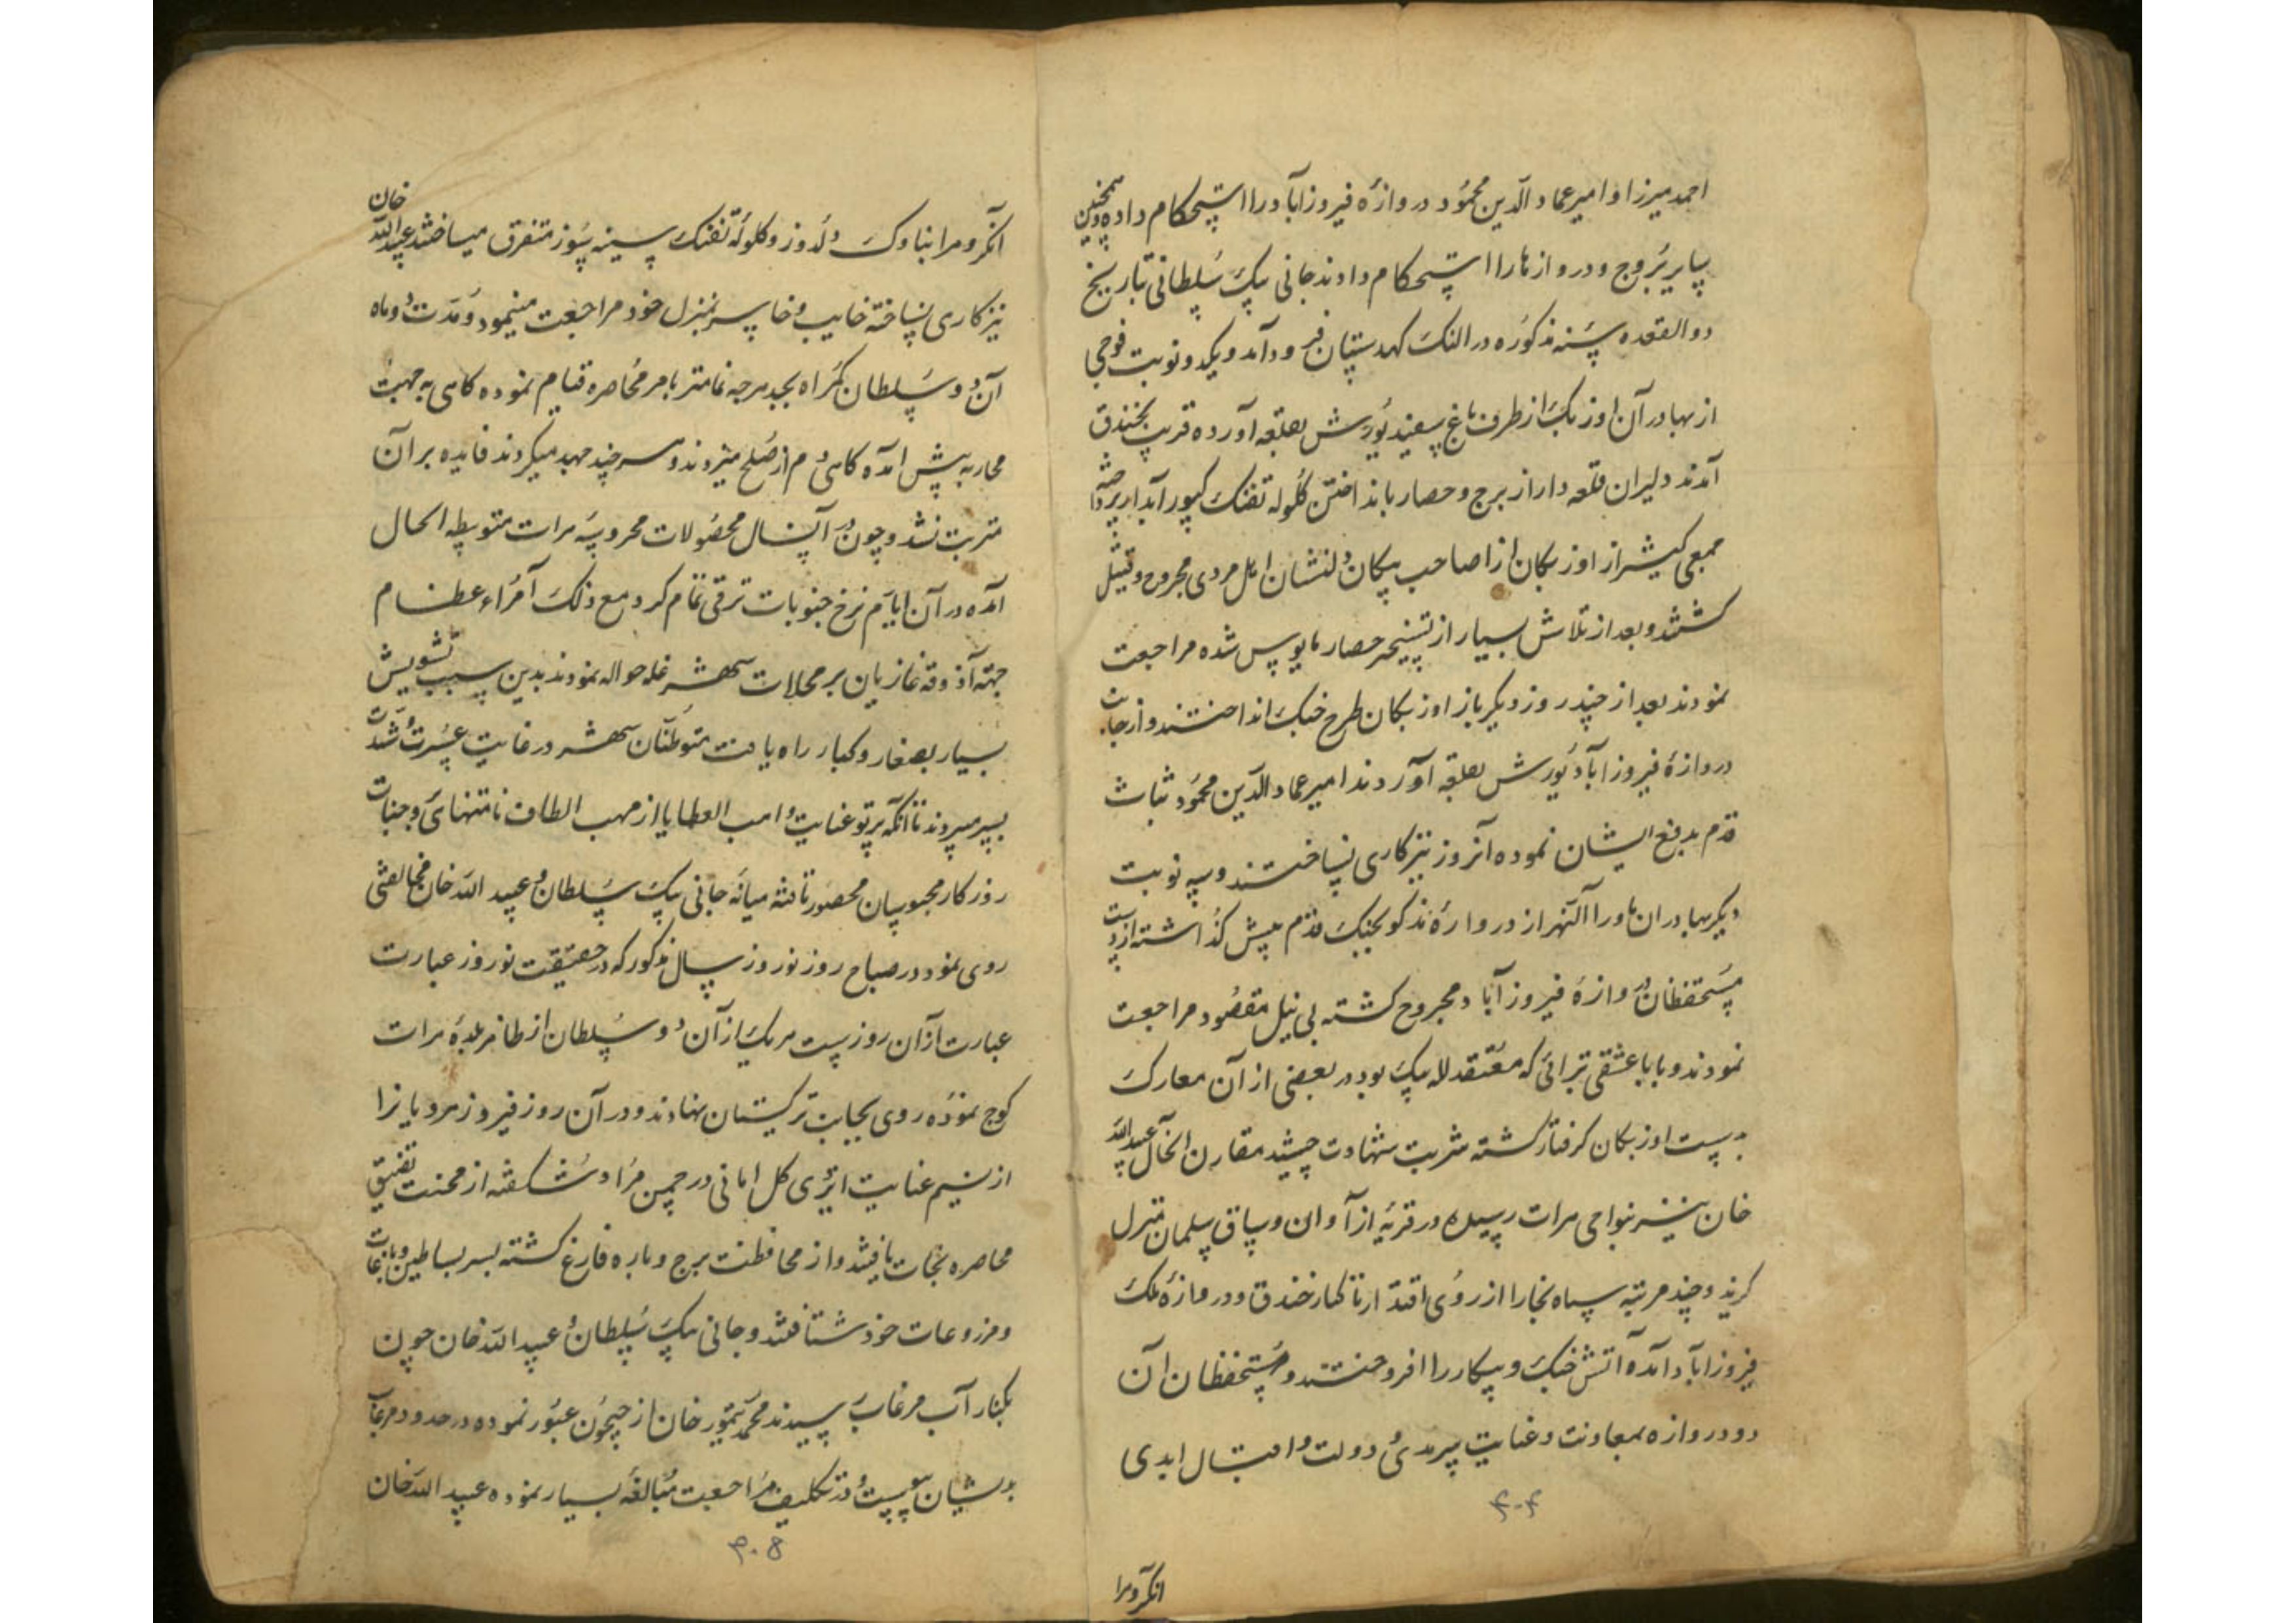 احمد میرزا و امیر عماد الدین محمود دروازهٔ فیروزاباد را استحکام داده همچنین
سایر بروج و دروازها را استحکام دادند جانی بیک سلطانی بتاریخ
ذوالقعده سنه مذکوره در النک کهدستان فرود آمد و یکدو نوبت فوجی
از بهادران اوزبک از طرف باغ سفید یورش بقلعه آورده قریب بخندق
آمدند دلیران قلعه دار از برج و حصار بانداختن گلوله تفنک
جمعی کثیر از اوزبکان از اصاحب پیکان دلنشان اهل مردی مجروح و قتیل
کشتند و بعد از تلاش بسیار از تسخیر حصار مایوس شده مراجعت
نمودند بعد از چند روز دیگر باز اوزبکان طرح جنک انداختند و از جانب
دروازهٔ فیروزاباد یورش بقلعه آوردند امیر عماد الدین محمود ثبات
قدم بدفع ایشان نموده آنروز نیز کاری نساختند و سه نوبت
دیگر بهادران ماورا النهر از دروازهٔ مذکور بجنک قدم پیش گذاشته از دست
مستحفظان دروازهٔ فیروزاباد مجروح کشته بی نیل مقصود مراجعت
نمودند و بابا عشقی تبرائی که معتقد لله بیک بود در بعضی از آن معارک
بدست اوزبکان کرفتار کشته شربت شهادت چشید مقارن الحال عبید الله
خان نیز بنواحی هرات رسیده در قریهٔ از آوان و ساق سلمان منزل
کزید و چند مرتبه سپاه بخارا از روی اقتدار تا کنار خندق و دروازهٔ ملک
فیروزاباد آمده آتش جنک و پیکار را افروختند و مستحفظان آن
دو دروازه بمعاونت و عنایت سرمدی و دولت و اقبال ابدی
۴۰۴
انکروه را
آنکروه را بناوک دلدوز و کلولهٔ تفنک سینه سوز متفرق میساختند عبید الله خان
نیز کاری نساخته خایب و خاسر بمنزل خود مراجعت مینمود و مدت دو ماه
آن دو سلطان کمراه بجد هرچه تمامتر بامر محاصره قیام نموده کاهی به جهت
محاربه پیش آمده کاهی دم از صلح میزدند و هر چند جهد میکردند فایده بر آن
مترتب نشد و چون در آنسال محصولات محروسهٔ هرات متوسطه الحال
آمده در آن ایام نرخ حبوبات ترقی تمام کرد مع ذلک امراء عظام
جهته آذوقه غازیان بر محلات شهر غله حواله نمودند بدین سبب تشویش
بسیار بصغار و کبار راه یافت متوطنان شهر در غایت عسرت و شدت
بسر میبردند تا آنکه پرتو عنایت واهب العطایا از مهب الطاف نامتناهی وجنات
روزکار محبوسان محصور تافته میانه جانی بیک سلطان و عبید الله خان مخالفتی
روی نمود در صباح روز نوروز سال مذکور که در حقیقت نوروز عبارت
عبارت از آن روزست هریک از آن دو سلطان از ظاهر بلدهٔ هرات
کوچ نموده روی بجانب ترکستان نهادند و در آن روز فیروز هرویانرا
از نسیم عنایت ایزدی کل امانی در چمن مراد شکفته از محنت تضییق
محاصره نجات یافتند و از محافظت برج و باره فارغ کشته بسر بساطین و باغات
و مزروعات خود شتافتند و جانی بیک سلطان و عبید الله خان چون
بکنار آب مرغاب رسیدند محمد تیمور خان از جیحون عبور نموده در حدود مرغاب
بدیشان پیوست و در تکلیف مراجعت مبالغه بسیار نموده عبید الله خان